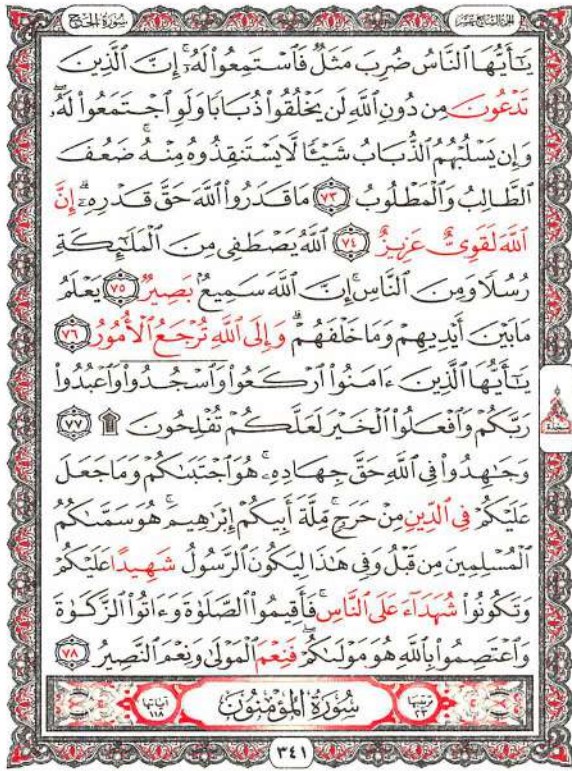 سُورَةُ الحَجِّ
الجُزءُ السَّابِعَ عَشَرَ
يَـٰٓأَيُّهَا ٱلنَّاسُ ضُرِبَ مَثَلٌ فَٱسْتَمِعُوا۟ لَهُۥٓ ۚ إِنَّ ٱلَّذِينَ
تَدْعُونَ مِن دُونِ ٱللَّهِ لَن يَخْلُقُوا۟ ذُبَابًا وَلَوِ ٱجْتَمَعُوا۟ لَهُۥ ۖ
وَإِن يَسْلُبْهُمُ ٱلذُّبَابُ شَيْـًٔا لَّا يَسْتَنقِذُوهُ مِنْهُ ۚ ضَعُفَ
ٱلطَّالِبُ وَٱلْمَطْلُوبُ ٧٣ مَا قَدَرُوا۟ ٱللَّهَ حَقَّ قَدْرِهِۦٓ ۗ إِنَّ
ٱللَّهَ لَقَوِىٌّ عَزِيزٌ ٧٤ ٱللَّهُ يَصْطَفِى مِنَ ٱلْمَلَـٰٓئِكَةِ
رُسُلًا وَمِنَ ٱلنَّاسِ ۚ إِنَّ ٱللَّهَ سَمِيعٌۢ بَصِيرٌ ٧٥ يَعْلَمُ
مَا بَيْنَ أَيْدِيهِمْ وَمَا خَلْفَهُمْ ۗ وَإِلَى ٱللَّهِ تُرْجَعُ ٱلْأُمُورُ ٧٦
يَـٰٓأَيُّهَا ٱلَّذِينَ ءَامَنُوا۟ ٱرْكَعُوا۟ وَٱسْجُدُوا۟ وَٱعْبُدُوا۟
رَبَّكُمْ وَٱفْعَلُوا۟ ٱلْخَيْرَ لَعَلَّكُمْ تُفْلِحُونَ ۩ ٧٧
سجدة
وَجَـٰهِدُوا۟ فِى ٱللَّهِ حَقَّ جِهَادِهِۦ ۚ هُوَ ٱجْتَبَىٰكُمْ وَمَا جَعَلَ
عَلَيْكُمْ فِى ٱلدِّينِ مِنْ حَرَجٍ ۚ مِّلَّةَ أَبِيكُمْ إِبْرَٰهِيمَ ۚ هُوَ سَمَّىٰكُمُ
ٱلْمُسْلِمِينَ مِن قَبْلُ وَفِى هَـٰذَا لِيَكُونَ ٱلرَّسُولُ شَهِيدًا عَلَيْكُمْ
وَتَكُونُوا۟ شُهَدَآءَ عَلَى ٱلنَّاسِ ۚ فَأَقِيمُوا۟ ٱلصَّلَوٰةَ وَءَاتُوا۟ ٱلزَّكَوٰةَ
وَٱعْتَصِمُوا۟ بِٱللَّهِ هُوَ مَوْلَىٰكُمْ ۖ فَنِعْمَ ٱلْمَوْلَىٰ وَنِعْمَ ٱلنَّصِيرُ ٧٨
ترتيبها ٢٣ سُورَةُ المُؤْمِنُونَ آياتها ١١٨
٣٤١